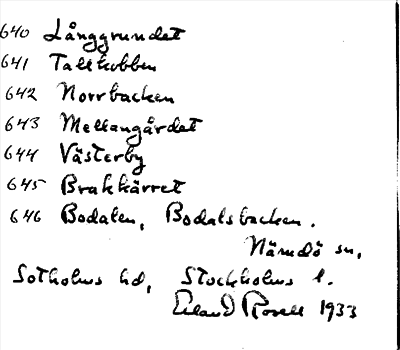 640 Långgrundet
641 Tallkobben
642 Norrbacken
643 Mellangärdet
644 Västerby
645 Brakkärret
646 Bodalen, Bodalsbacken.
Nämdö sn,
Sotholms hd, Stockholms l.
Erland Rosell 1933